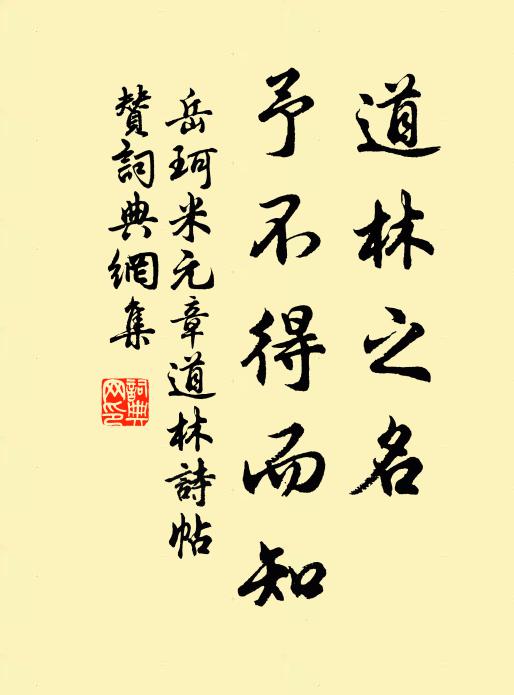 道林之名
予不得而知
岳珂米元章道林詩帖
贊詞典網集
詞典
网印